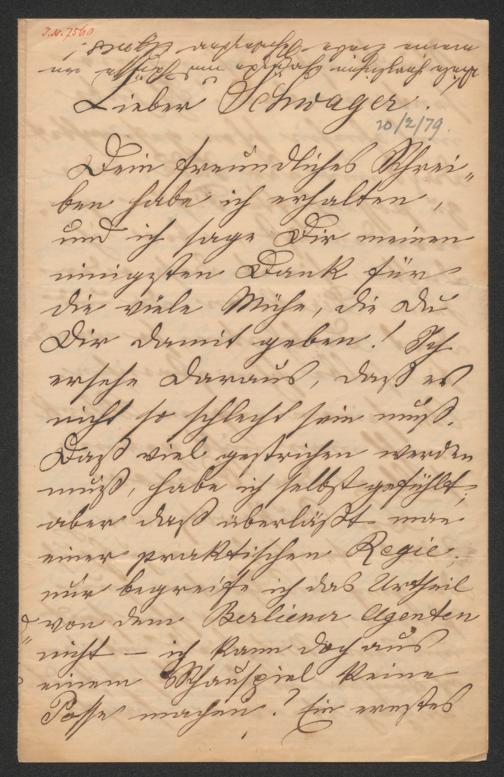 J.N. 7560
Lieber Schwager.
20/2/79.
Dein freundliches Schrei„
ben habe ich erhalten,
und ich sage Dir meinen
innigsten Dank für
die viele Mühe, die Du
Dir damit geben! Ich
ersehe daraus, daß es
nicht so schlecht sein muß.
Daß viel gestrichen werden
muß, habe ich selbst gefühlt,
aber daß überläßt man
einer praktischen Regie;
nur begreife ich das Urtheil
von dem Berliener Agenten
nicht – ich kann doch aus
einem Schauspiel keine
Posse machen? Ein ernstes